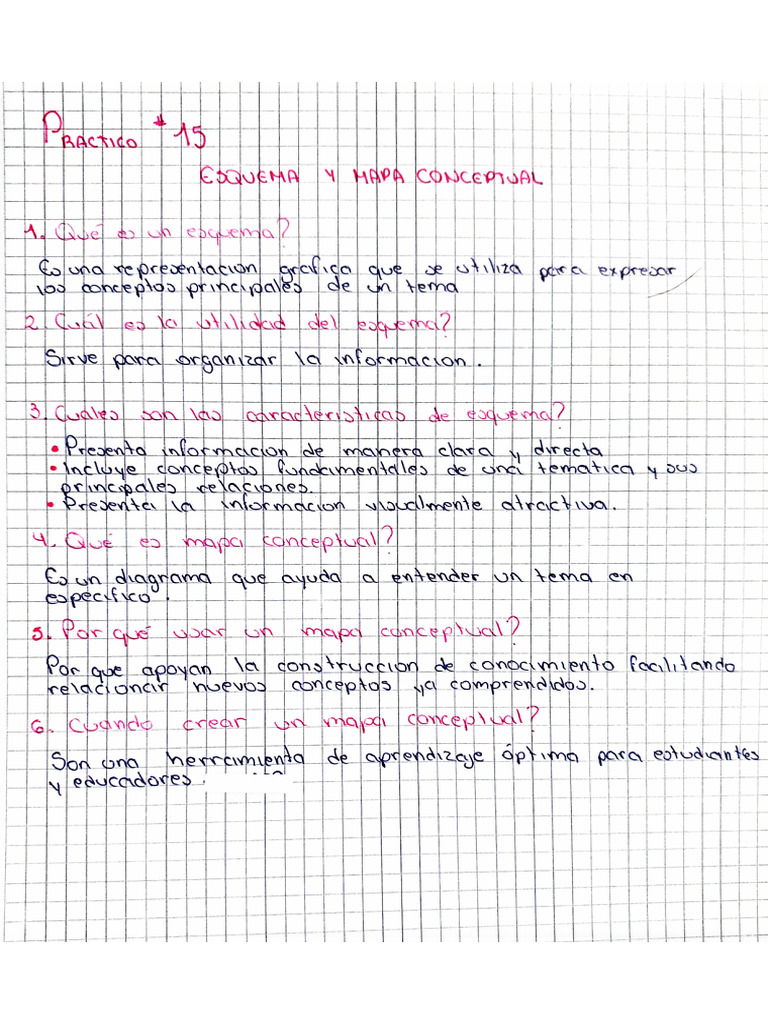 PRACTICO # 15
ESQUEMA Y MAPA CONCEPTUAL
1. Qué es un esquema?
Es una representacion grafica que se utiliza para expresar
los conceptos principales de un tema
2. Cuál es la utilidad del esquema?
Sirve para organizar la informacion.
3. Cuales son las caracteristicas de esquema?
• Presenta informacion de manera clara y directa
• Incluye conceptos fundamentales de una tematica y sus
principales relaciones.
• Presenta la informacion visualmente atractiva.
4. Qué es mapa conceptual?
Es un diagrama que ayuda a entender un tema en
especifico.
5. Por qué usar un mapa conceptual?
Por que apoyan la construccion de conocimiento facilitando
relacionar nuevos conceptos ya comprendidos.
6. Cuando crear un mapa conceptual?
Son una herramienta de aprendizaje óptima para estudiantes
y educadores.